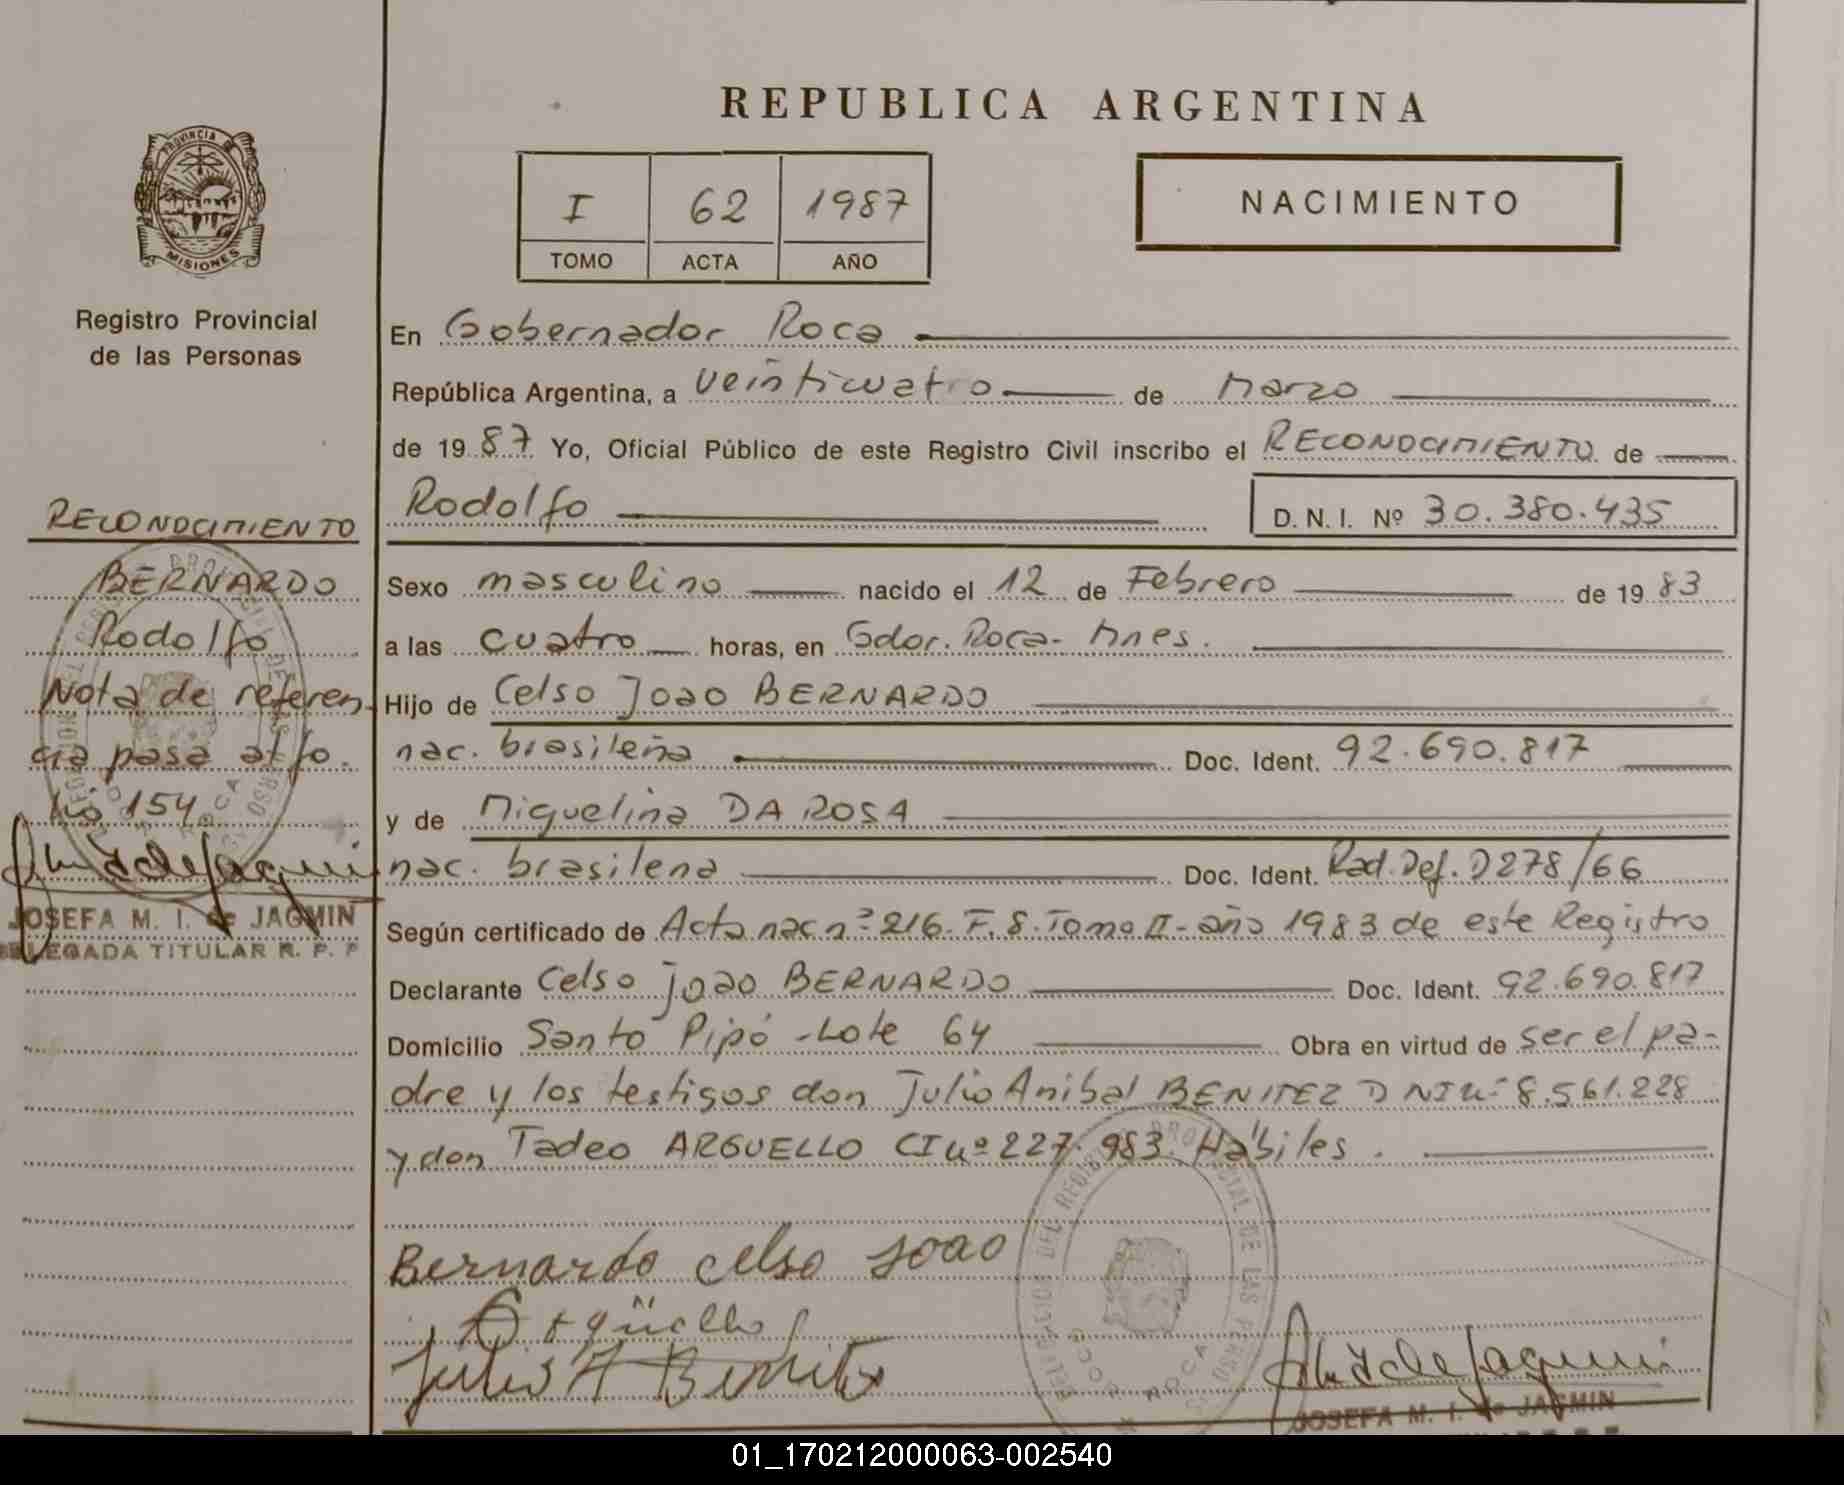 REPUBLICA ARGENTINA
I 62 1987
TOMO ACTA AÑO
NACIMIENTO
PROVINCIA DE
MISIONES
Registro Provincial
de las Personas
RECONOCIMIENTO
BERNARDO
Rodolfo
Nota de referen-
cia pasa al fo.
lio 154.
JOSEFA M. I. de JAQMIN
DELEGADA TITULAR R. P. P
En Gobernador Roca
República Argentina, a veinticuatro de Marzo
de 1987 Yo, Oficial Público de este Registro Civil inscribo el RECONOCIMIENTO de
Rodolfo D. N. I. Nº 30.380.435
Sexo masculino nacido el 12 de Febrero de 1983
a las cuatro horas, en Gdor. Roca- Mnes.
Hijo de Celso Joao BERNARDO
nac. brasileña Doc. Ident. 92.690.817
y de Miguelina DA ROSA
nac. brasilena Doc. Ident. Rad. Def. D278/66
Según certificado de Acta nac nº 216. F. 8. Tomo II - año 1983 de este Registro
Declarante Celso Joao BERNARDO Doc. Ident. 92.690.817
Domicilio Santo Pipó - Lote 64 Obra en virtud de ser el pa-
dre y los testigos don Julio Anibal BENITEZ DNI nº 8.561.228
y don Tadeo ARGUELLO CI nº 227.983. Hábiles.
Bernardo Celso Joao
Argüello
Julio A Benitez
JOSEFA M. I. de JAQMIN
01_170212000063-002540